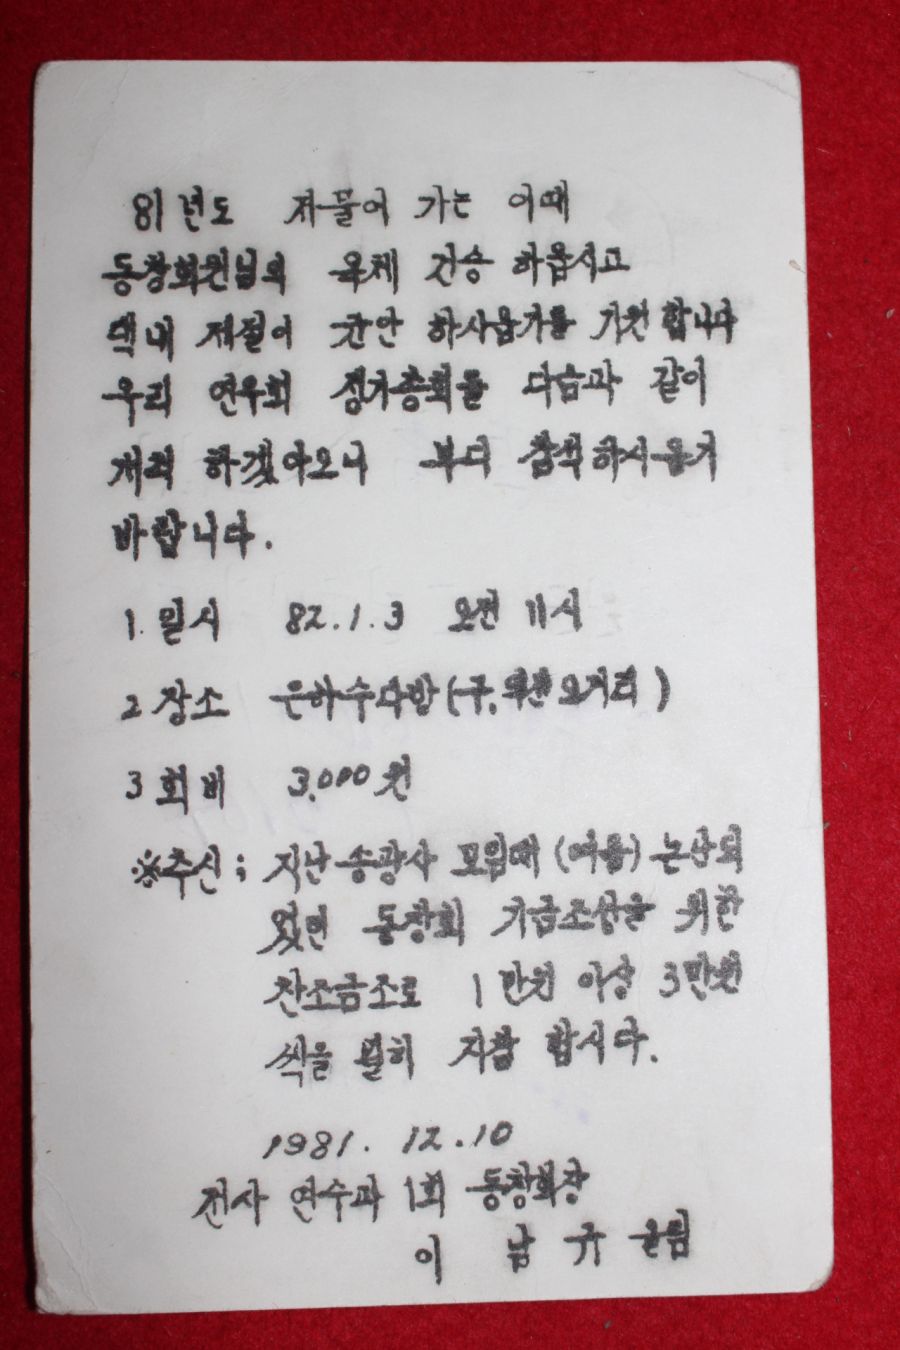 81년도 저물어 가는 이때
동창회원님의 옥체 건승 하옵시고
댁내 제절이 균안 하사옵기를 기원 합니다
우리 연우회 정기총회를 다음과 같이
개최 하겠아오니 부디 참석하시옵기
바랍니다.
1. 일시 82.1.3 오전 11시
2 장소 은하수다방(구, 역전오거리)
3 회비 3,000원
※추신; 지난 송광사 모임때 (여름) 논난되
었던 동창회 기금조성을 위한
찬조금조로 1만원 이상 3만원
씩을 필히 지참 합시다.
1981. 12.10
전사 연수과 1회 동창회장
이 남 규 올림